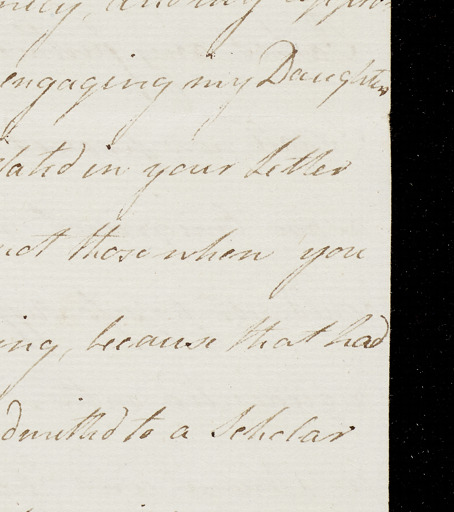 engaging my Daughter
lated in your Letter
not those when you
ing, because that had
dmitted to a Scholar